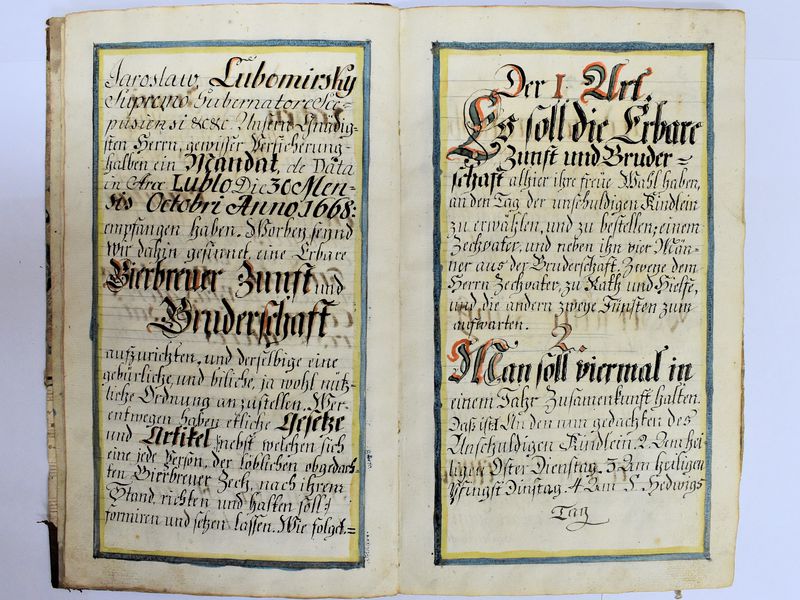 Jaroslaw Lubomirsky
Supremo Gubernatore Sce-
pusiensi &c&c. Unsern Gnädig-
sten Herrn, gewisser Versicherung
halben ein Mandat, de Data
in Arce Lublo Die 30 Men-
sis Octobri Anno 1668:
empfangen haben. Worbey seynd
wir dahin gesinnet, eine Erbare
Bierbreuer Zunfft und
Bruderschafft
aufzurichten, und derselbige eine
gebürliche, und biliche, ja wohl nütz-
liche Ordnung anzustellen. Wer-
entwegen haben etliche Gesetze
und Artikel, nebst welchen sich
eine jede Person, der löblichen obgedach-
ten Bierbreuer Zech, nach ihrem
Stand, richten und halten soll,
formiren und setzen lassen. Wie folget.=
Der 1. Art.
Es soll die Erbare
Zunft und Bruder=
schafft alhier ihre freüe Wahl haben,
an den Tag der unschuldigen Kindlein
zu erwählen, und zu bestellen; einem
Zechvater, und neben ihn vier Män-
ner aus der Bruderschafft. Zweye dem
Herrn Zechvater, zu Rath und Hielfe,
und die andern zweye Jüngsten zum
aufwarten.
2.
Man soll viermal in
einem Jahr Zusamenkunft halten.
Deß ist 1. An den nun gedachten des
Unschuldigen Kindlein 2. Am hei-
ligen Oster Dienstag. 3. Am heiligen
Pfingst Dinstag. 4. Am S. Hedwigs
Tag